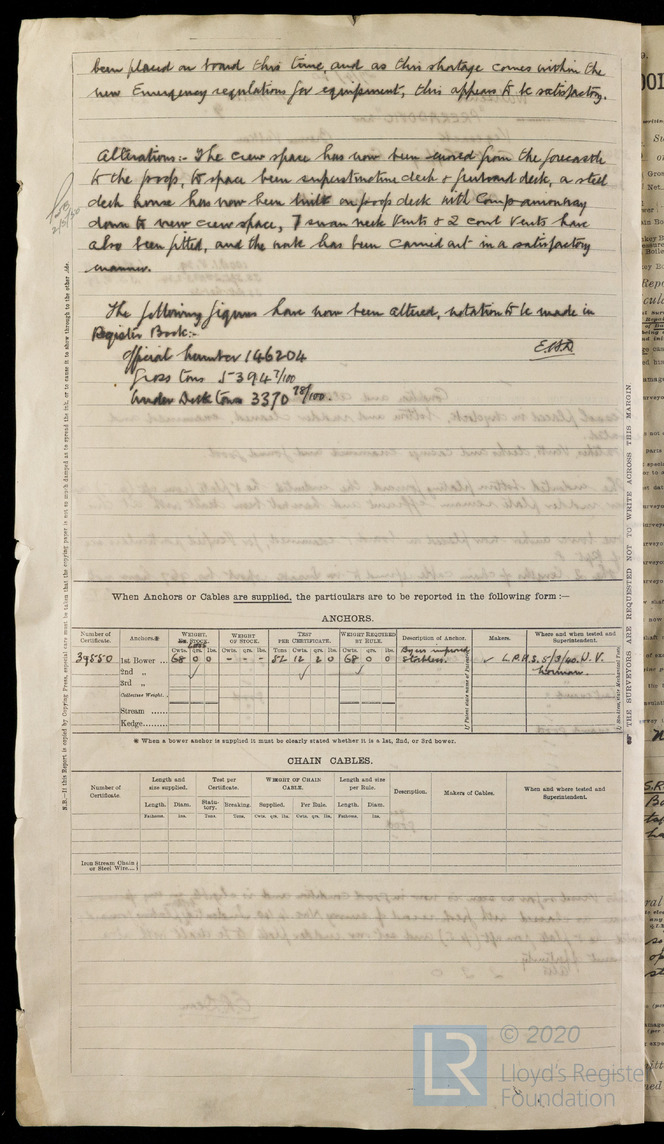 been placed on board this time, and as this shortage comes within the
new Emergency regulations for equipment, this appears to be satisfactory.
Alterations:- The crew space has now been moved from the forecastle
to the poop, to space between superstructure deck & freeboard deck, a steel
deck house has now been built on poop deck with Companionway
down to new crew space, 7 swan neck Vents & 2 cowl Vents have
also been fitted, and the work has been carried out in a satisfactory
manner.
The following figures have now been altered, notation to be made in
Register Book:-
Official Number 146204
Gross tons 5394 7/100
Under Deck tons 3370 78/100.
N.B.—If this Report is copied by Copying Press, especial care must be taken that the copying paper is not so much damped as to spread the ink, or to cause it to show through to the other side.
THE SURVEYORS ARE REQUESTED NOT TO WRITE ACROSS THIS MARGIN
When Anchors or Cables are supplied, the particulars are to be reported in the following form :—
ANCHORS.
Number of Certificate. Anchors.* WEIGHT. STOCK. WEIGHT OF STOCK. TEST PER CERTIFICATE. WEIGHT REQUIRED BY RULE. Description of Anchor. Makers. Where and when tested and Superintendent.
Cwts. qrs. lbs. Cwts. qrs. lbs. Tons Cwts. qrs. lbs. Cwts. qrs. lbs.
39550 1st Bower ... 68 0 0 - - - 52 12 2 0 68 0 0 Byers improved Stockless. ✓ L.P.H.S. 5/3/40. N. V. Norman.
2nd „
3rd „
Collective Weight.
Stream ......
Kedge.........
* When a bower anchor is supplied it must be clearly stated whether it is a 1st, 2nd, or 3rd bower.
CHAIN CABLES.
Number of Certificate. Length and size supplied. Test per Certificate. WEIGHT OF CHAIN CABLE. Length and size per Rule. Description. Makers of Cables. When and where tested and Superintendent.
Length. Diam. Statutory. Breaking. Supplied. Per Rule. Length. Diam.
Fathoms. Ins. Tons. Tons. Cwts. qrs. lbs. Cwts. qrs. lbs. Fathoms. Ins.
Iron Stream Chain or Steel Wire
LR
© 2020
Lloyd's Register
Foundation